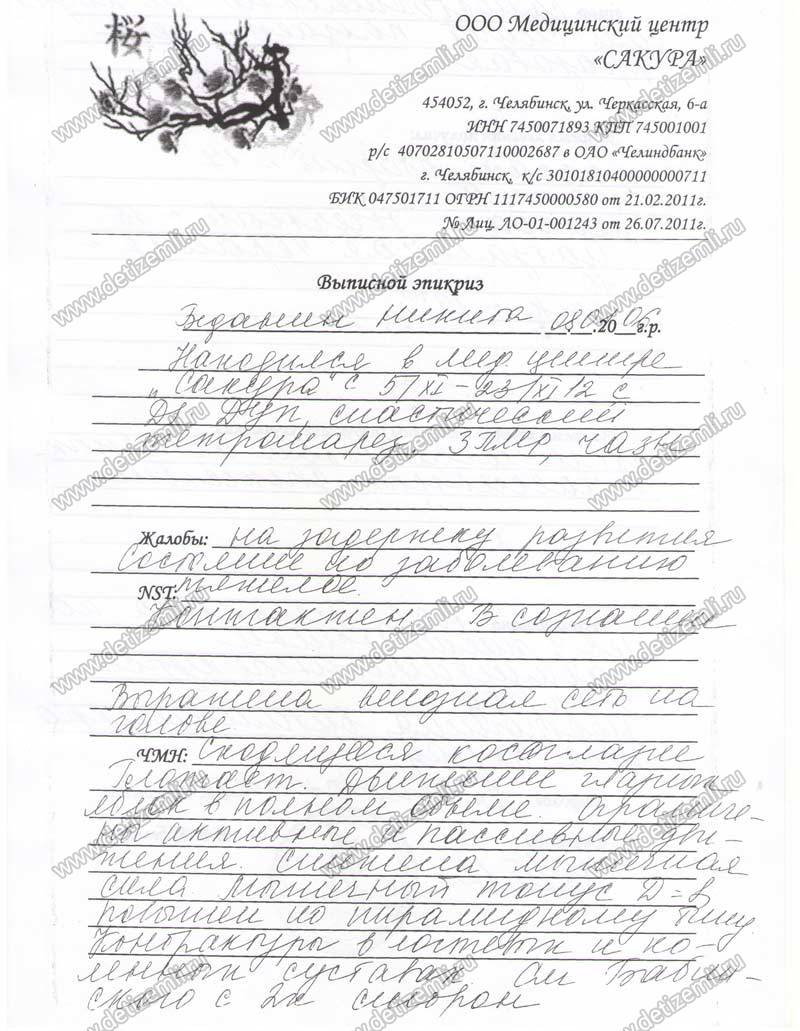 桜
ООО Медицинский центр
«САКУРА»
454052, г. Челябинск, ул. Черкасская, 6-а
ИНН 7450071893 КПП 745001001
р/с 40702810507110002687 в ОАО «Челиндбанк»
г. Челябинск, к/с 30101810400000000711
БИК 047501711 ОГРН 1117450000580 от 21.02.2011г.
№ Лиц. ЛО-01-001243 от 26.07.2011г.
Выписной эпикриз
Никита 08 .20 06 г.р.
Находился в мед. центре
"Сакура" с 5/XI - 23/XI 12 с
Ds ДЦП, спастический
тетрапарез. ЗПМР, ЧАЗН
Жалобы: на задержку развития
Состояние по заболеванию
NST: тяжелое.
Контактен. В сознании
Выражена венозная сеть на
голове
ЧМН: Сходящееся косоглазие
Глотает. Движения глазных
яблок в полном объеме. Ограниче-
ны активные и пассивные дви-
жения. Снижена мышечная
сила. Мышечный тонус D=S
повышен по пирамидному типу.
Контрактуры в локтевых и ко-
ленных суставах См Бабин-
ского с 2х сторон
www.detizemli.ru